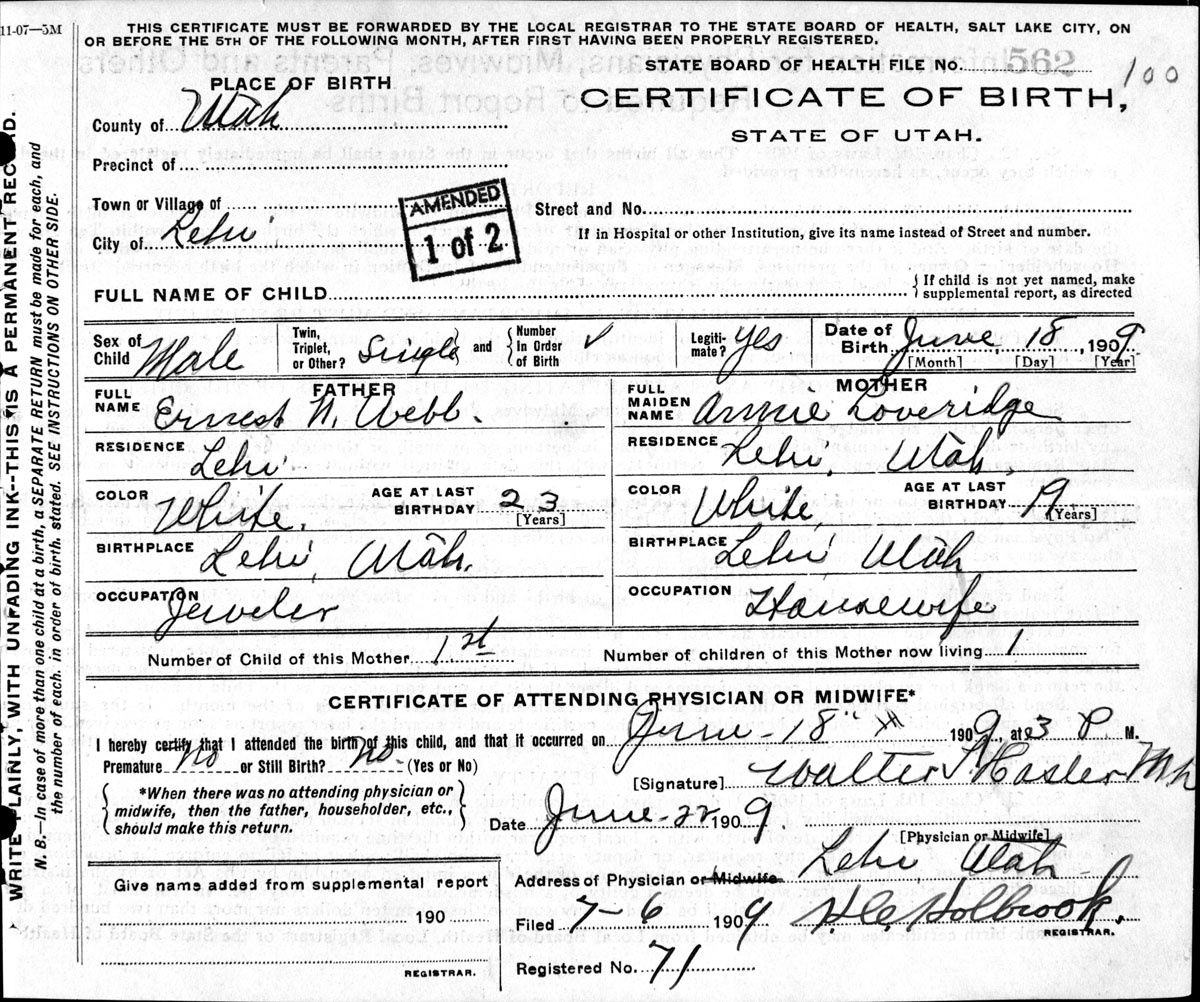 11-07—5M
THIS CERTIFICATE MUST BE FORWARDED BY THE LOCAL REGISTRAR TO THE STATE BOARD OF HEALTH, SALT LAKE CITY, ON
OR BEFORE THE 5TH OF THE FOLLOWING MONTH, AFTER FIRST HAVING BEEN PROPERLY REGISTERED.
STATE BOARD OF HEALTH FILE NO. 562 100
PLACE OF BIRTH
CERTIFICATE OF BIRTH,
STATE OF UTAH.
County of Utah
Precinct of
Town or Village of
City of Lehi
AMENDED
1 of 2
Street and No.
If in Hospital or other Institution, give its name instead of Street and number.
FULL NAME OF CHILD
{If child is not yet named, make
supplemental report, as directed
Sex of Child Male
Twin, Triplet, or Other? Single and Number In Order of Birth 1
Legiti-mate? Yes
Date of Birth June 18, 1909
[Month] [Day] [Year]
FATHER
FULL NAME Ernest N. Webb.
RESIDENCE Lehi
COLOR White.
AGE AT LAST BIRTHDAY 23
[Years]
BIRTHPLACE Lehi, Utah.
OCCUPATION Jeweler
MOTHER
FULL MAIDEN NAME Annie Loveridge
RESIDENCE Lehi, Utah
COLOR White,
AGE AT LAST BIRTHDAY 19
[Years]
BIRTHPLACE Lehi, Utah
OCCUPATION Housewife
Number of Child of this Mother 1st
Number of children of this Mother now living
CERTIFICATE OF ATTENDING PHYSICIAN OR MIDWIFE*
I hereby certify that I attended the birth of this child, and that it occurred on June - 18th 1909, at 3 P M.
Premature No or Still Birth? No. (Yes or No)
[Signature] Walter T Hasler MD
{*When there was no attending physician or
midwife, then the father, householder, etc.,
should make this return.}
Date June 1909
[Physician or Midwife]
Give name added from supplemental report
190
REGISTRAR.
Address of Physician or Midwife Lehi Utah
Filed 7-6 1909 H.C. Holbrook.
REGISTRAR.
Registered No. 71
WRITE PLAINLY, WITH UNFADING INK--THIS IS A PERMANENT RECORD.
N. B. In case of more than one child at a birth, a SEPARATE RETURN must be made for each, and
the number of each, in order of birth, stated. SEE INSTRUCTIONS ON OTHER SIDE.